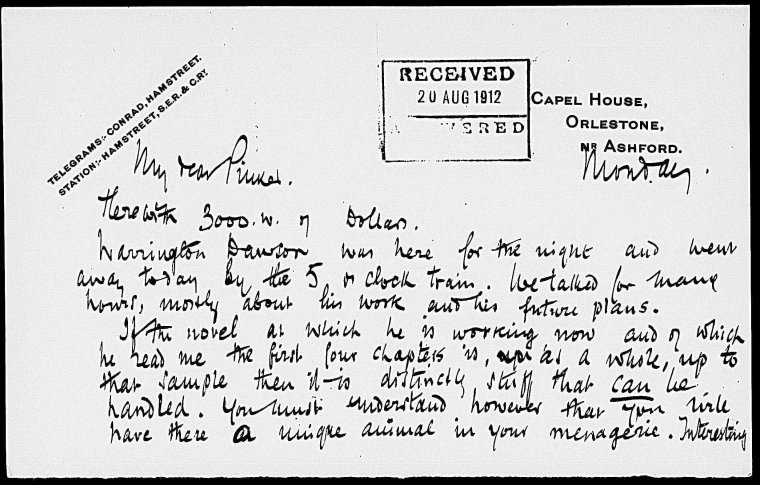 TELEGRAMS:- CONRAD, HAMSTREET.
STATION:- HAMSTREET, S.E.R. & C.RY.
RECEIVED
20 AUG 1912
CAPEL HOUSE,
ORLESTONE,
NR ASHFORD.
Monday.
My dear Pinker.
Herewith 3000.w. of Dollars.
Warrington Dawson was here for the night and went
away today by the 5 o'clock train. We talked for many
hours, mostly about his work and his future plans.
If the novel at which he is working now and of which
he read me the first four chapters is, as a whole, up to
that sample then it is distinctly stuff that can be
handled. You must understand however that you will
have there a unique animal in your menagerie. Interesting